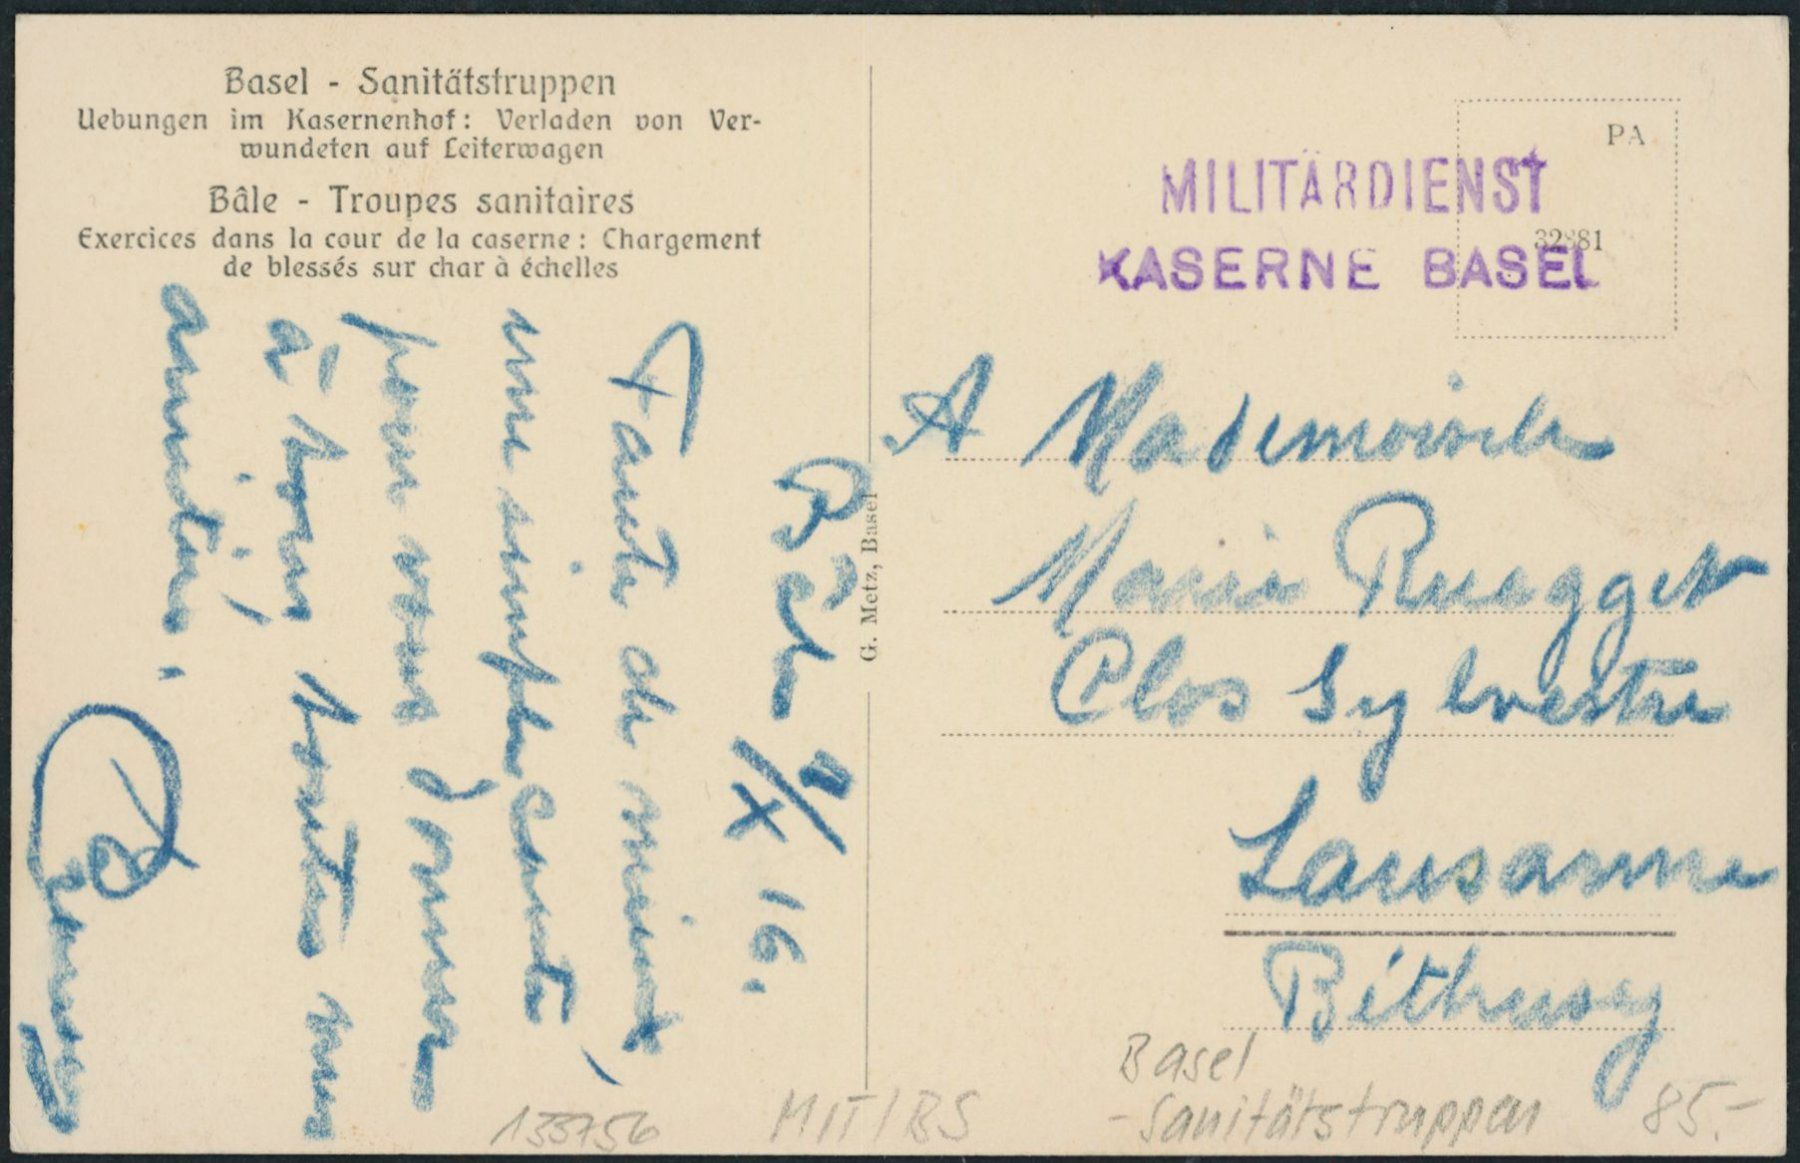 Basel - Sanitätstruppen
Uebungen im Kasernenhof: Verladen von Ver-
wundeten auf Leiterwagen
Bâle - Troupes sanitaires
Exercices dans la cour de la caserne: Chargement
de blessés sur char à échelles
PA
MILITÄRDIENST
32881
KASERNE BASEL
Bâle 9/X 16.
Faute de mieux
une simple carte,
pour vous donner
à tous toutes mes
amitiés.
G. Metz, Basel
A Mademoiselle
Marie Rueggt
Clos Sylvestre
Lausanne
Béthusy
133756
MIT/BS
Basel
-Sanitätstruppen
85.-